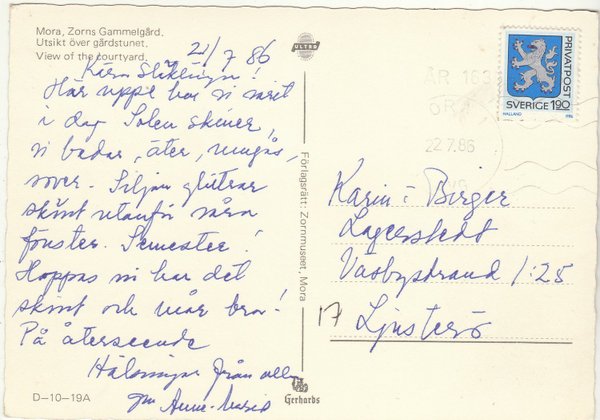 Mora, Zorns Gammelgård.
Utsikt över gårdstunet.
View of the courtyard.
21/7 86
Kära Släktingar!
Här uppe har vi varit
i dag. Solen skiner,
vi badar, äter, umgås,
sover. Siljan glittrar
skönt utanför våra
fönster. Semester!
Hoppas ni har det
skönt och mår bra!
På återseende
Hälsningar från alla
gm Anne-
D-10-19A
ULTRA
Förlagsrätt: Zornmuseet, Mora
Gerhards
PRIVATPOST
SVERIGE 190
HALLAND
ÅR 163
22.7.86
Karin o Birger
Lagerstedt
Väsbystrand 1:25
17 Ljusterö